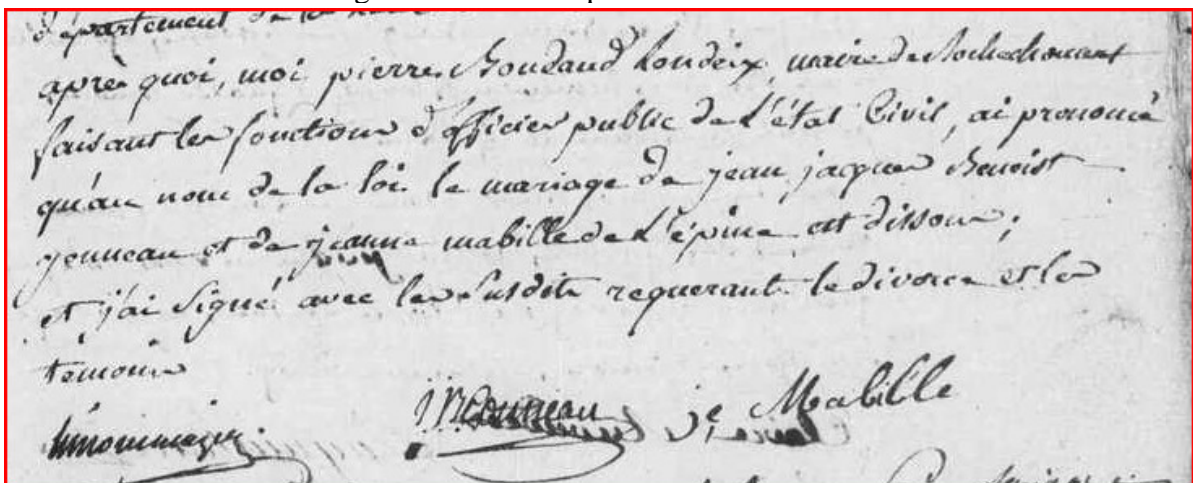 département de la
après quoi, moi pierre Boudaud Londeix, maire de Rochechouart
faisant les fonctions d'officier public de l'état Civil, ai prononcé
qu'au nom de la loi le mariage de jean jacques Benoist
gonneau et de jeanne mabille de L'épine est dissous;
et j'ai signé avec les susdits requerant le divorce et les
temoins
j e Mabille